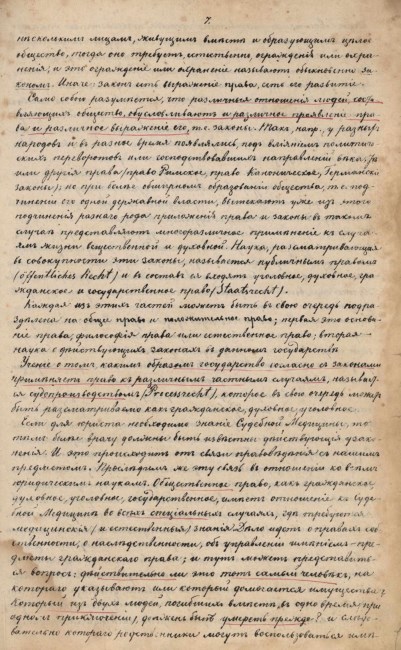 7.
нѣсколькимъ лицамъ, живущимъ вмѣстѣ и образующимъ цѣлое
общество, тогда оно требуетъ, естественно, огражденія или охра-
ненія, и это огражденіе или охраненіе называютъ обыкновенно за-
кономъ. Иначе: законъ есть выраженіе права, есть его развитіе.
Само собою разумѣется, что различныя отношенія людей, сос-
тавляющихъ общество, обусловливаютъ и различное проявленіе пра-
ва и различное выраженіе его, т.е. законы. Такъ, напр., у разныхъ
народовъ и въ разное время появлялись, подъ вліяніемъ политиче-
скихъ переворотовъ или господствовавшихъ направленій вѣка, тѣ
или другія права (право Римское, право Каноническое, Германскіе
законы); но при болѣе обширномъ образованіи общества, т.е. под-
чиненіи его одной державной власти, вытекаютъ уже изъ этого
подчиненія разнаго рода приложенія права и законы въ такомъ
случаѣ представляютъ многоразличное примѣненіе къ случа-
ямъ жизни вещественной и духовной. Наука, разсматривающая
въ совокупности эти законы, называется публичнымъ правомъ
(öffentliches Recht) и въ составъ ея входятъ уголовное, духовное, гра-
жданское и государственное право (Staatsrecht).
Каждая изъ этихъ частей можетъ быть въ свою очередь подраз-
дѣлена на общее право и положительное право; первая это основа-
ніе права, философія права или естественное право; вторая —
наука о дѣйствующихъ законахъ въ данномъ государствѣ.
Ученіе о томъ какимъ образомъ государство согласно съ законами
примѣняетъ право къ различнымъ частнымъ случаямъ, называет-
ся судопроизводствомъ (Processrecht), которое въ свою очередь можетъ
быть разсматриваемо какъ гражданское, духовное, уголовное.
Если для юриста необходимо знаніе Судебной Медицины, то
тѣмъ болѣе врачу должны быть извѣстны дѣйствующія узако-
ненія. И это происходитъ отъ связи правовѣдѣнія съ нашимъ
предметомъ. Прослѣдимъ же эту связь въ отношеніи ко всѣмъ
юридическимъ наукамъ. Общественное право, какъ гражданское,
духовное, уголовное, государственное, имѣетъ отношеніе къ Суде-
бной Медицинѣ во всѣхъ спеціальныхъ случаяхъ, гдѣ требуются
медицинскія (и естественныя) знанія. Дѣло идетъ о правахъ соб-
ственности, о наслѣдственности, объ управленіи имѣніемъ — пре-
дметы гражданскаго права; и тутъ можетъ представить-
ся вопросъ: дѣйствительно ли это тотъ самый человѣкъ, на
котораго указываютъ или который домогается имущества?
Который изъ двухъ людей, погибшихъ вмѣстѣ, въ одно время при
одномъ приключеніи, долженъ былъ умереть прежде? и слѣдо-
вательно котораго родственники могутъ воспользоваться имѣ-